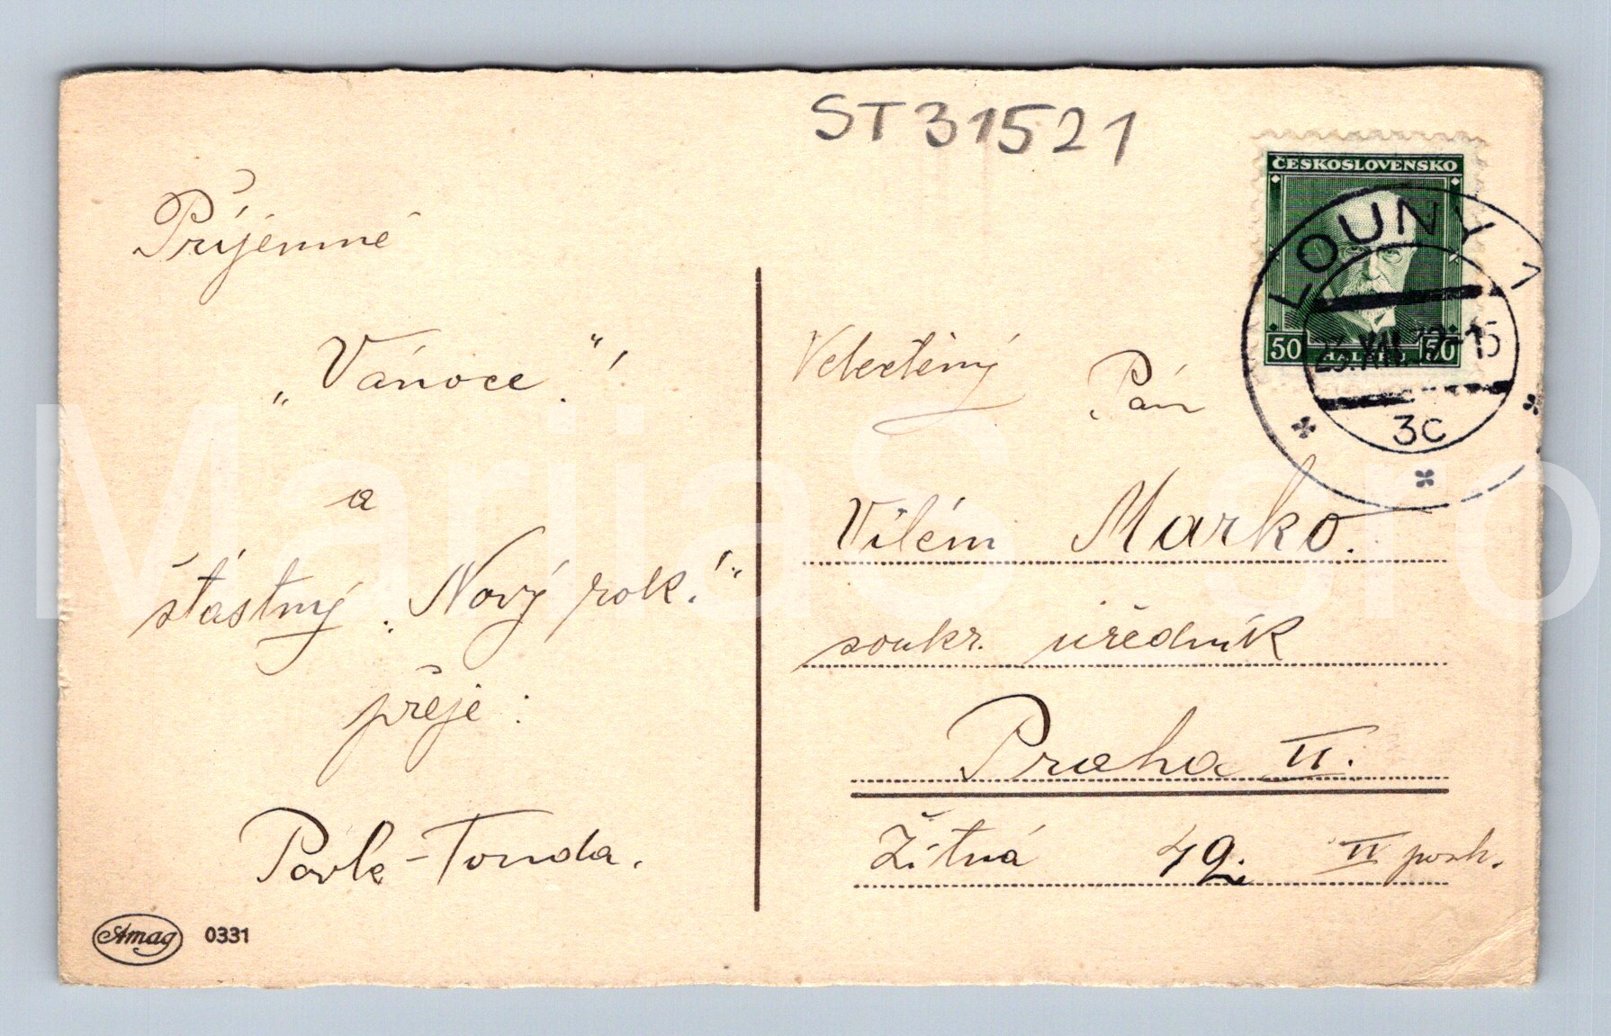 ST31521
Příjemné
„Vánoce“!
a
šťastný „Nový rok!“
přeje:
Tonda.
Amag 0331
ČESKOSLOVENSKO
50 HALÉŘŮ 50
LOUNY 1
23.XII.32-15
3c
Velectěný Pán
Vilém Marko.
soukr. úředník
Praha II.
Žitná 49. II posch.